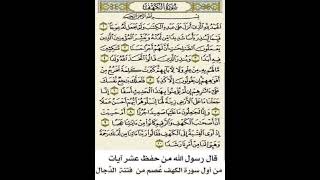 سُورَةُ الْكَهْفِ
بِسْمِ اللَّهِ الرَّحْمَٰنِ الرَّحِيمِ
الْحَمْدُ لِلَّهِ الَّذِي أَنزَلَ عَلَىٰ عَبْدِهِ الْكِتَٰبَ وَلَمْ يَجْعَل لَّهُ عِوَجَا ١
قَيِّمًا لِّيُنذِرَ بَأْسًا شَدِيدًا مِّن لَّدُنْهُ وَيُبَشِّرَ الْمُؤْمِنِينَ الَّذِينَ
يَعْمَلُونَ الصَّٰلِحَٰتِ أَنَّ لَهُمْ أَجْرًا حَسَنًا ٢ مَّٰكِثِينَ فِيهِ
أَبَدًا ٣ وَيُنذِرَ الَّذِينَ قَالُوا اتَّخَذَ اللَّهُ وَلَدًا ٤
مَّا لَهُم بِهِ مِنْ عِلْمٍ وَلَا لِآبَائِهِمْ كَبُرَتْ كَلِمَةً تَخْرُجُ مِنْ
أَفْوَٰهِهِمْ إِن يَقُولُونَ إِلَّا كَذِبًا ٥ فَلَعَلَّكَ بَٰخِعٌ نَّفْسَكَ
عَلَىٰ ءَاثَٰرِهِمْ إِن لَّمْ يُؤْمِنُوا بِهَٰذَا الْحَدِيثِ أَسَفًا ٦ إِنَّا
جَعَلْنَا مَا عَلَى الْأَرْضِ زِينَةً لَّهَا لِنَبْلُوَهُمْ أَيُّهُمْ أَحْسَنُ عَمَلًا ٧
وَإِنَّا لَجَٰعِلُونَ مَا عَلَيْهَا صَعِيدًا جُرُزًا ٨ أَمْ حَسِبْتَ
أَنَّ أَصْحَٰبَ الْكَهْفِ وَالرَّقِيمِ كَانُوا مِنْ ءَايَٰتِنَا عَجَبًا ٩ إِذْ
أَوَى الْفِتْيَةُ إِلَى الْكَهْفِ فَقَالُوا رَبَّنَا ءَاتِنَا مِن لَّدُنكَ رَحْمَةً
وَهَيِّئْ لَنَا مِنْ أَمْرِنَا رَشَدًا ١٠
قال رسول الله من حفظ عشر آيات
من اول سورة الكهف عُصم من فتنة الدَّجال